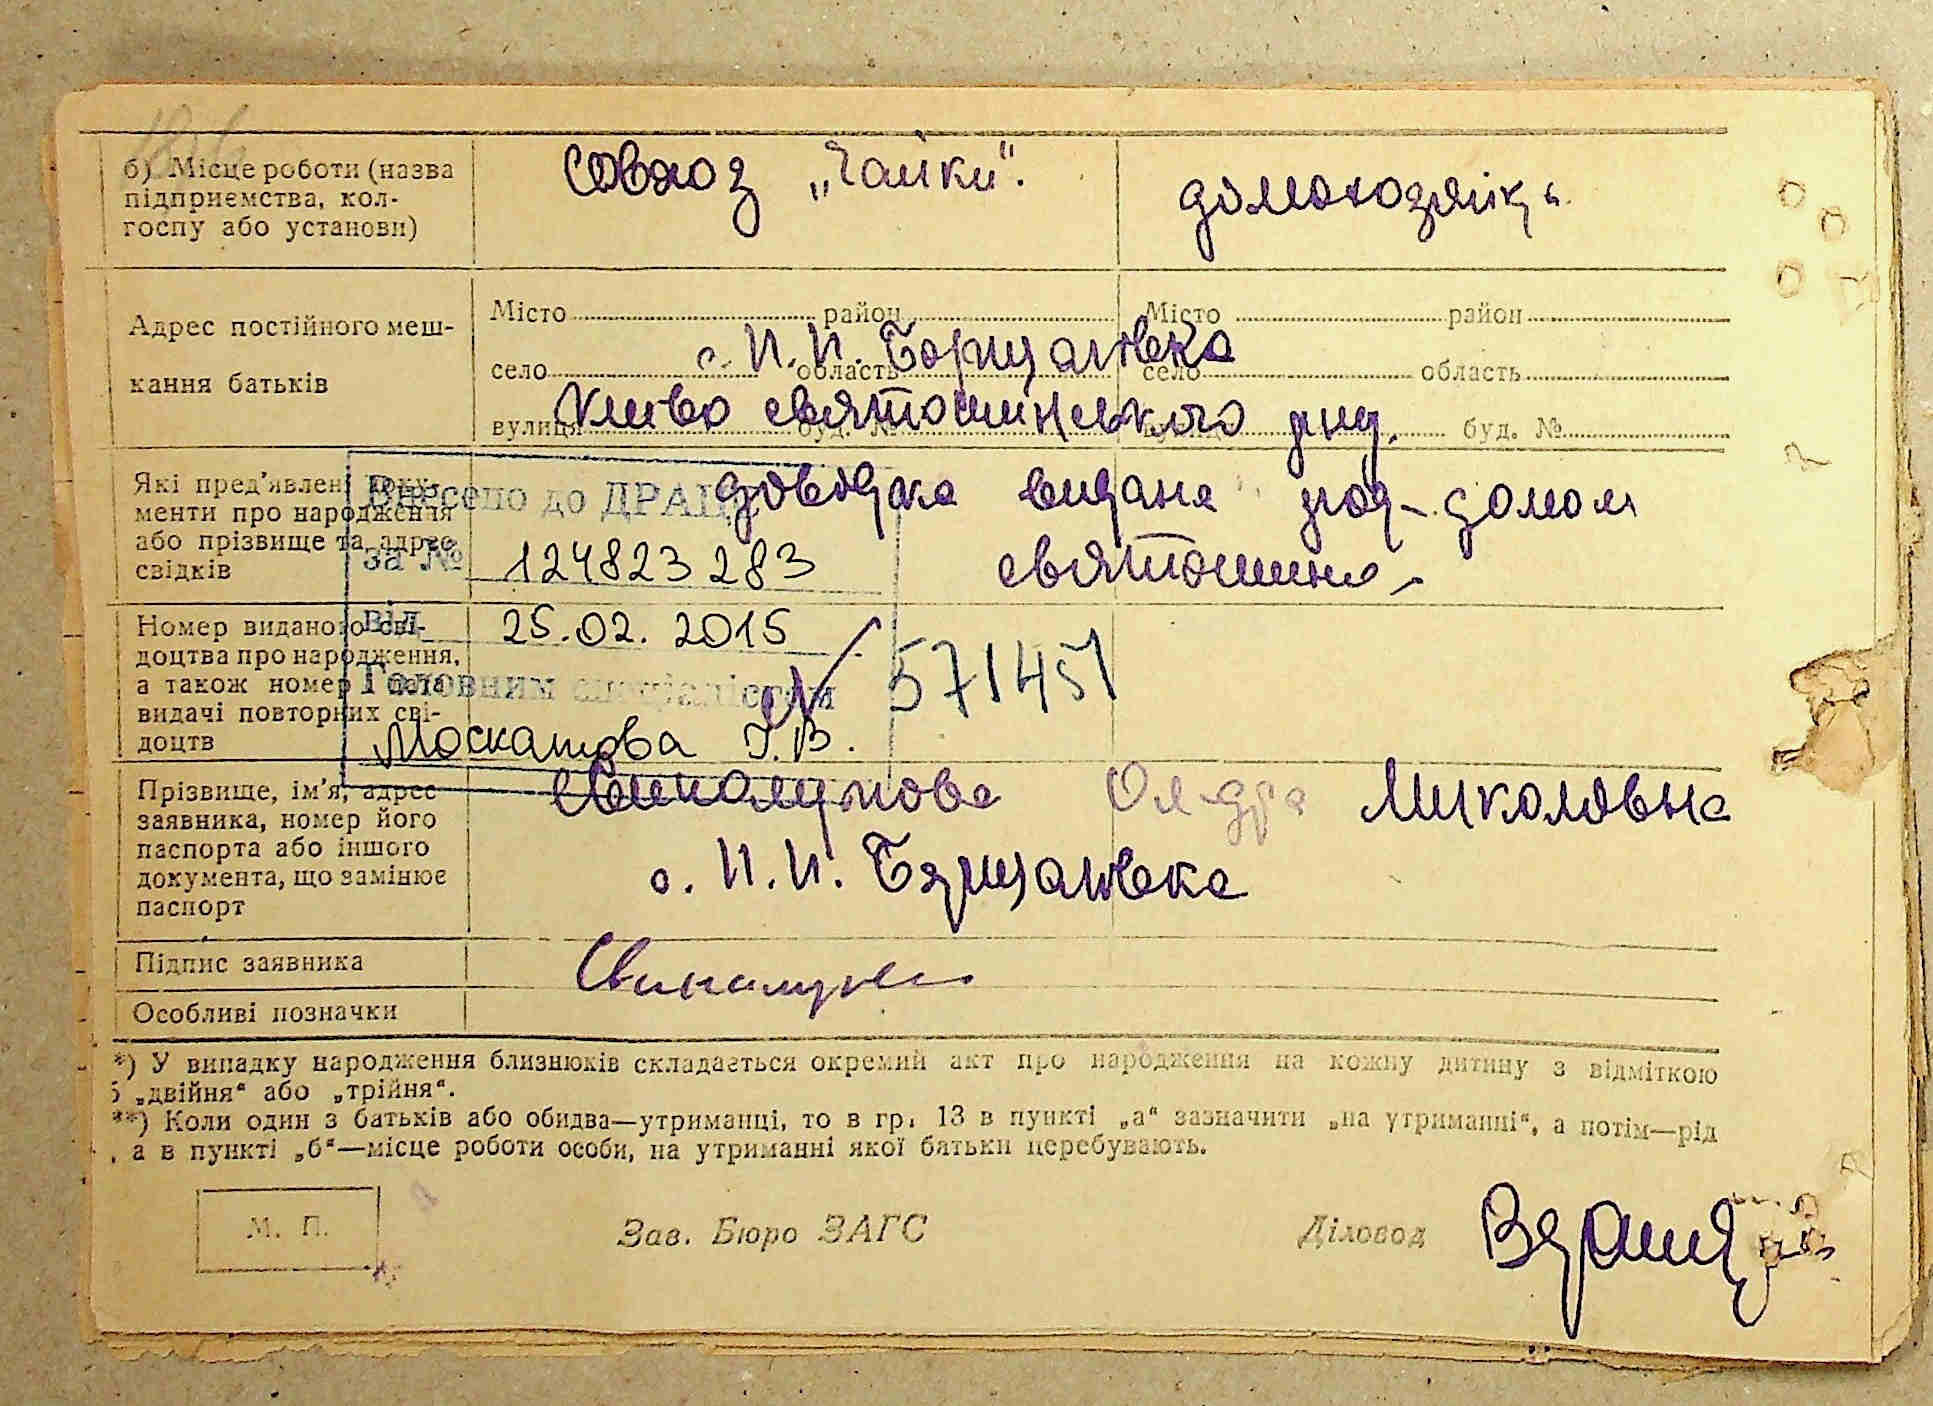 б) Місце роботи (назва
підприємства, кол-
госпу або установи)
совхоз „Чайки“.
домохозяйка
Адрес постійного меш-
кання батьків
Місто район Місто район
село область село область
вулиця буд. № буд. №
с. П. П. Борщагівка
Києво святошинського
Які пред'явлені доку-
менти про народження
або прізвище та адрес
свідків
довідка видана род-домом
святошино
Внесено до ДРАЦ
за № 124823283
від 25.02.2015
Головним спеціалістом
Москатова Г.В.
Номер виданого сві-
доцтва про народження,
а також номер і дата
видачі повторних сві-
доцтв
571451
Прізвище, ім'я, адрес
заявника, номер його
паспорта або іншого
документа, що замінює
паспорт
Миколовна
с. П. П. Борщагівка
Підпис заявника
Особливі позначки
*) У випадку народження близнюків складається окремий акт про народження на кожну дитину з відміткою
„двійня“ або „трійня“.
**) Коли один з батьків або обидва—утриманці, то в гр. 13 в пункті „а“ зазначити „на утриманні“, а потім—рід
, а в пункті „б“—місце роботи особи, на утриманні якої батьки перебувають.
М. П.
Зав. Бюро ЗАГС
Діловод